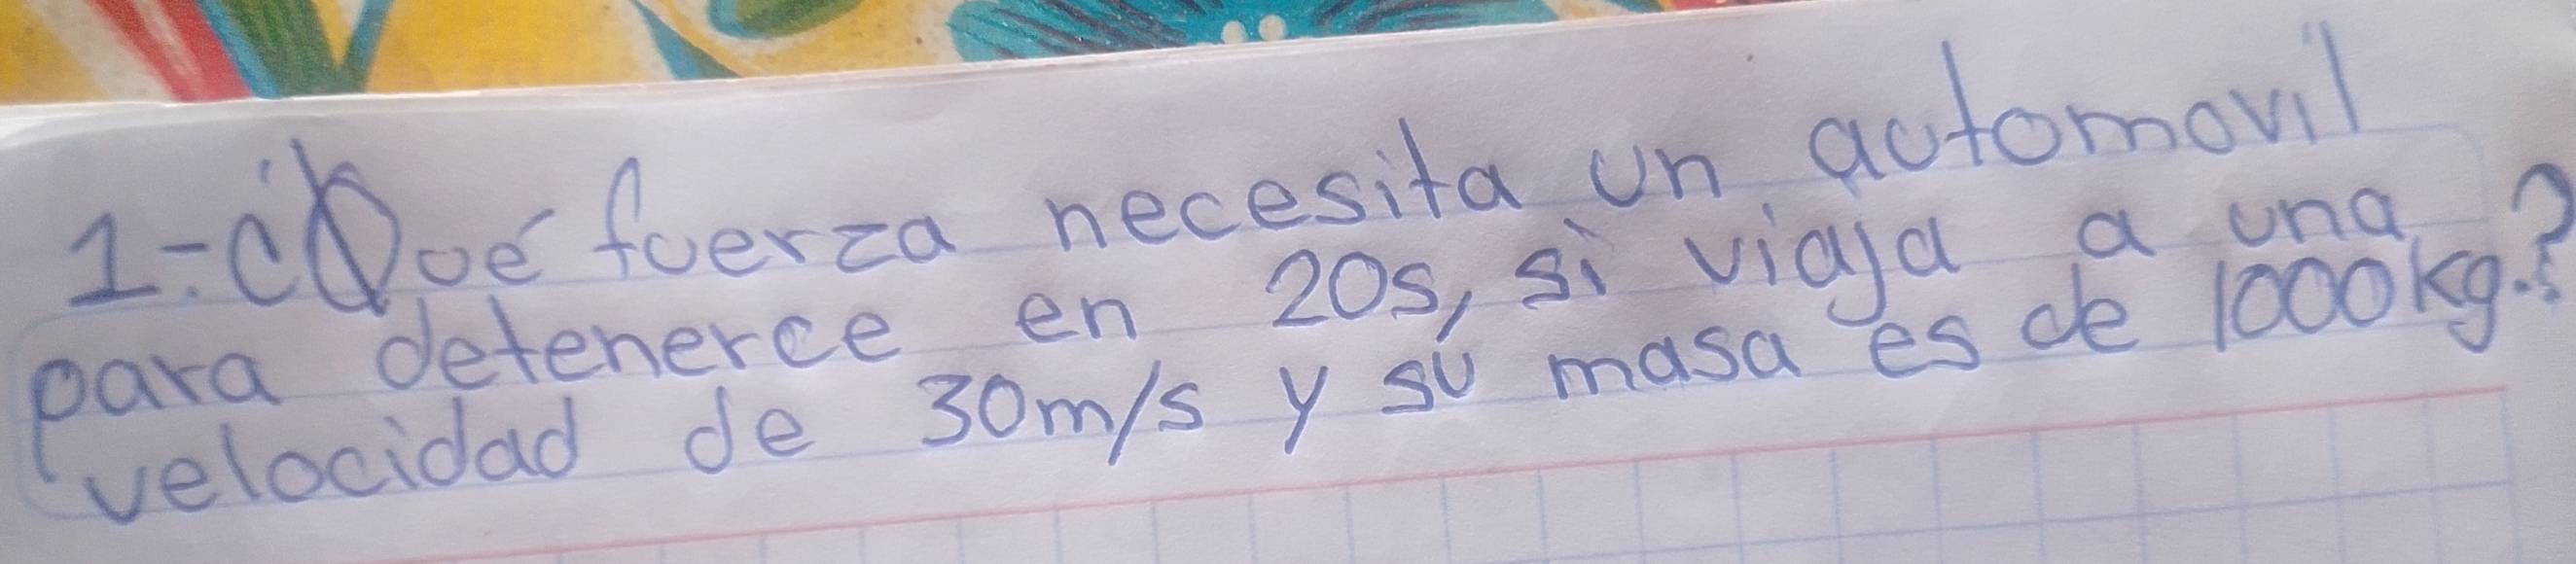 1-. ¿Qué fuerza necesita un automovil
para detenerce en 20s, si viaja a una
velocidad de 30m/s y su masa es de 1000kg.?